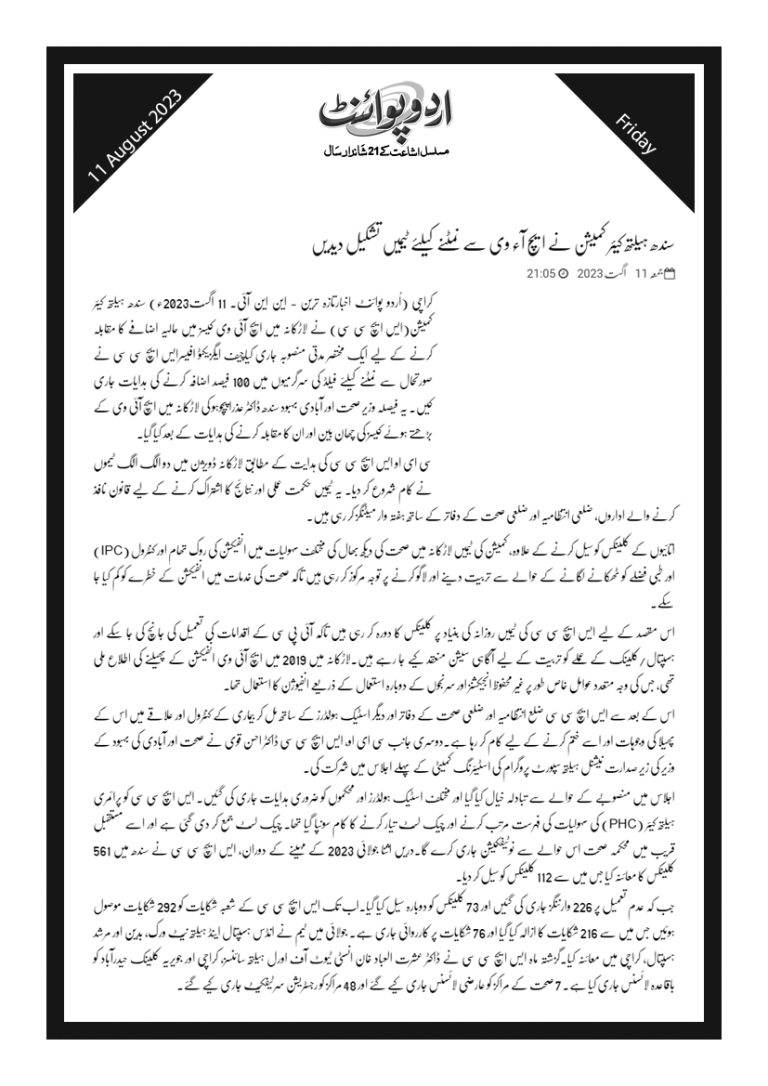 11 August 2023
اردوپوائنٹ
مسلسل اشاعت کے 21 شاندار سال
Friday
سندھ ہیلتھ کیئر کمیشن نے ایچ آء وی سے نمٹنے کیلئے ٹیمیں تشکیل دیدیں
جمعہ 11 اگست 2023 21:05
کراچی (اُردو پوائنٹ اخبارتازہ ترین - این این آئی۔ 11 اگست2023ء) سندھ ہیلتھ کیئر
کمیشن(ایس ایچ سی سی) نے لاڑکانہ میں ایچ آئی وی کیسز میں حالیہ اضافے کا مقابلہ
کرنے کے لیے ایک مختصر مدتی منصوبہ جاری کیاچیف ایگزیکٹو افیسرایس ایچ سی سی نے
صورتحال سے نمٹنے کیلئے فیلڈ کی سرگرمیوں میں 100 فیصد اضافہ کرنے کی ہدایات جاری
کیں۔ یہ فیصلہ وزیر صحت اور آبادی بہبود سندھ ڈاکٹر عذراپیچوہو کی لاڑکانہ میں ایچ آئی وی کے
بڑھتے ہوئے کیسز کی چھان بین اور ان کا مقابلہ کرنے کی ہدایات کے بعد کیا گیا۔
سی ای او ایس ایچ سی سی کی ہدایت کے مطابق لاڑکانہ ڈویژن میں دو الگ الگ ٹیموں
نے کام شروع کر دیا۔ یہ ٹیمیں حکمت عملی اور نتائج کا اشتراک کرنے کے لیے قانون نافذ
کرنے والے اداروں، ضلعی انتظامیہ اور ضلعی صحت کے دفاتر کے ساتھ ہفتہ وار میٹنگز کر رہی ہیں۔
اتائیوں کے کلینکس کو سیل کرنے کے علاوہ، کمیشن کی ٹیمیں لاڑکانہ میں صحت کی دیکھ بھال کی مختلف سہولیات میں انفیکشن کی روک تھام اور کنٹرول (IPC)
اور طبی فضلے کو ٹھکانے لگانے کے حوالے سے تربیت دینے اور لاگو کرنے پر توجہ مرکوز کر رہی ہیں تاکہ صحت کی خدمات میں انفیکشن کے خطرے کو کم کیا جا
سکے۔
اس مقصد کے لیے ایس ایچ سی سی کی ٹیمیں روزانہ کی بنیاد پر کلینکس کا دورہ کر رہی ہیں تاکہ آئی پی سی کے اقدامات کی تعمیل کی جانچ کی جا سکے اور
ہسپتال/ کلینک کے عملے کو تربیت کے لیے آگاہی سیشن منعقد کیے جا رہے ہیں۔لاڑکانہ میں 2019 میں ایچ آئی وی انفیکشن کے پھیلنے کی اطلاع ملی
تھی، جس کی وجہ متعدد عوامل خاص طور پر غیر محفوظ انجیکشنز اور سرنجوں کے دوبارہ استعمال کے ذریعے انفیوژن کا استعمال تھا۔
اس کے بعد سے ایس ایچ سی سی ضلع انتظامیہ اور ضلعی صحت کے دفاتر اور دیگر اسٹیک ہولڈرز کے ساتھ مل کر بیماری کے کنٹرول اور علاقے میں اس کے
پھیلا کی وجوہات اور اسے ختم کرنے کے لیے کام کر رہا ہے۔دوسری جانب سی ای او، ایس ایچ سی سی ڈاکٹر احسن قوی نے صحت اور آبادی کی بہبود کے
وزیر کی زیر صدارت نیشنل ہیلتھ سپورٹ پروگرام کی اسٹیئرنگ کمیٹی کے پہلے اجلاس میں شرکت کی۔
اجلاس میں منصوبے کے حوالے سے تبادلہ خیال کیا گیا اور مختلف اسٹیک ہولڈرز اور محکموں کو ضروری ہدایات جاری کی گئیں۔ ایس ایچ سی سی کو پرائمری
ہیلتھ کیئر (PHC) کی سہولیات کی فہرست مرتب کرنے اور چیک لسٹ تیار کرنے کا کام سونپا گیا تھا۔ چیک لسٹ جمع کر دی گئی ہے اور اسے مستقبل
قریب میں محکمہ صحت اس حوالے سے نوٹیفکیشن جاری کرے گا۔دریں اثنا جولائی 2023 کے مہینے کے دوران، ایس ایچ سی سی نے سندھ میں 561
کلینکس کا معائنہ کیا جس میں سے 112 کلینکس کو سیل کر دیا۔
جب کہ عدم تعمیل پر 226 وارننگز جاری کی گئیں اور 73 کلینکس کو دوبارہ سیل کیا گیا۔اب تک ایس ایچ سی سی کے شعبہ شکایات کو 292 شکایات موصول
ہوئیں جس میں سے 216 شکایات کا ازالہ کیا گیا اور 76 شکایات پر کارروائی جاری ہے۔ جولائی میں ٹیم نے انڈس ہسپتال اینڈ ہیلتھ نیٹ ورک، بدین اور مرشد
ہسپتال، کراچی میں معائنہ کیا۔گزشتہ ماہ ایس ایچ سی سی نے ڈاکٹر عشرت العباد خان انسٹی ٹیوٹ آف اورل ہیلتھ سائنسز، کراچی اور جویریہ کلینک حیدرآباد کو
باقاعدہ لائسنس جاری کیا ہے۔ 7 صحت کے مراکز کو عارضی لائسنس جاری کیے گئے اور 48 مراکز کو رجسٹریشن سرٹیفکیٹ جاری کیے گئے۔